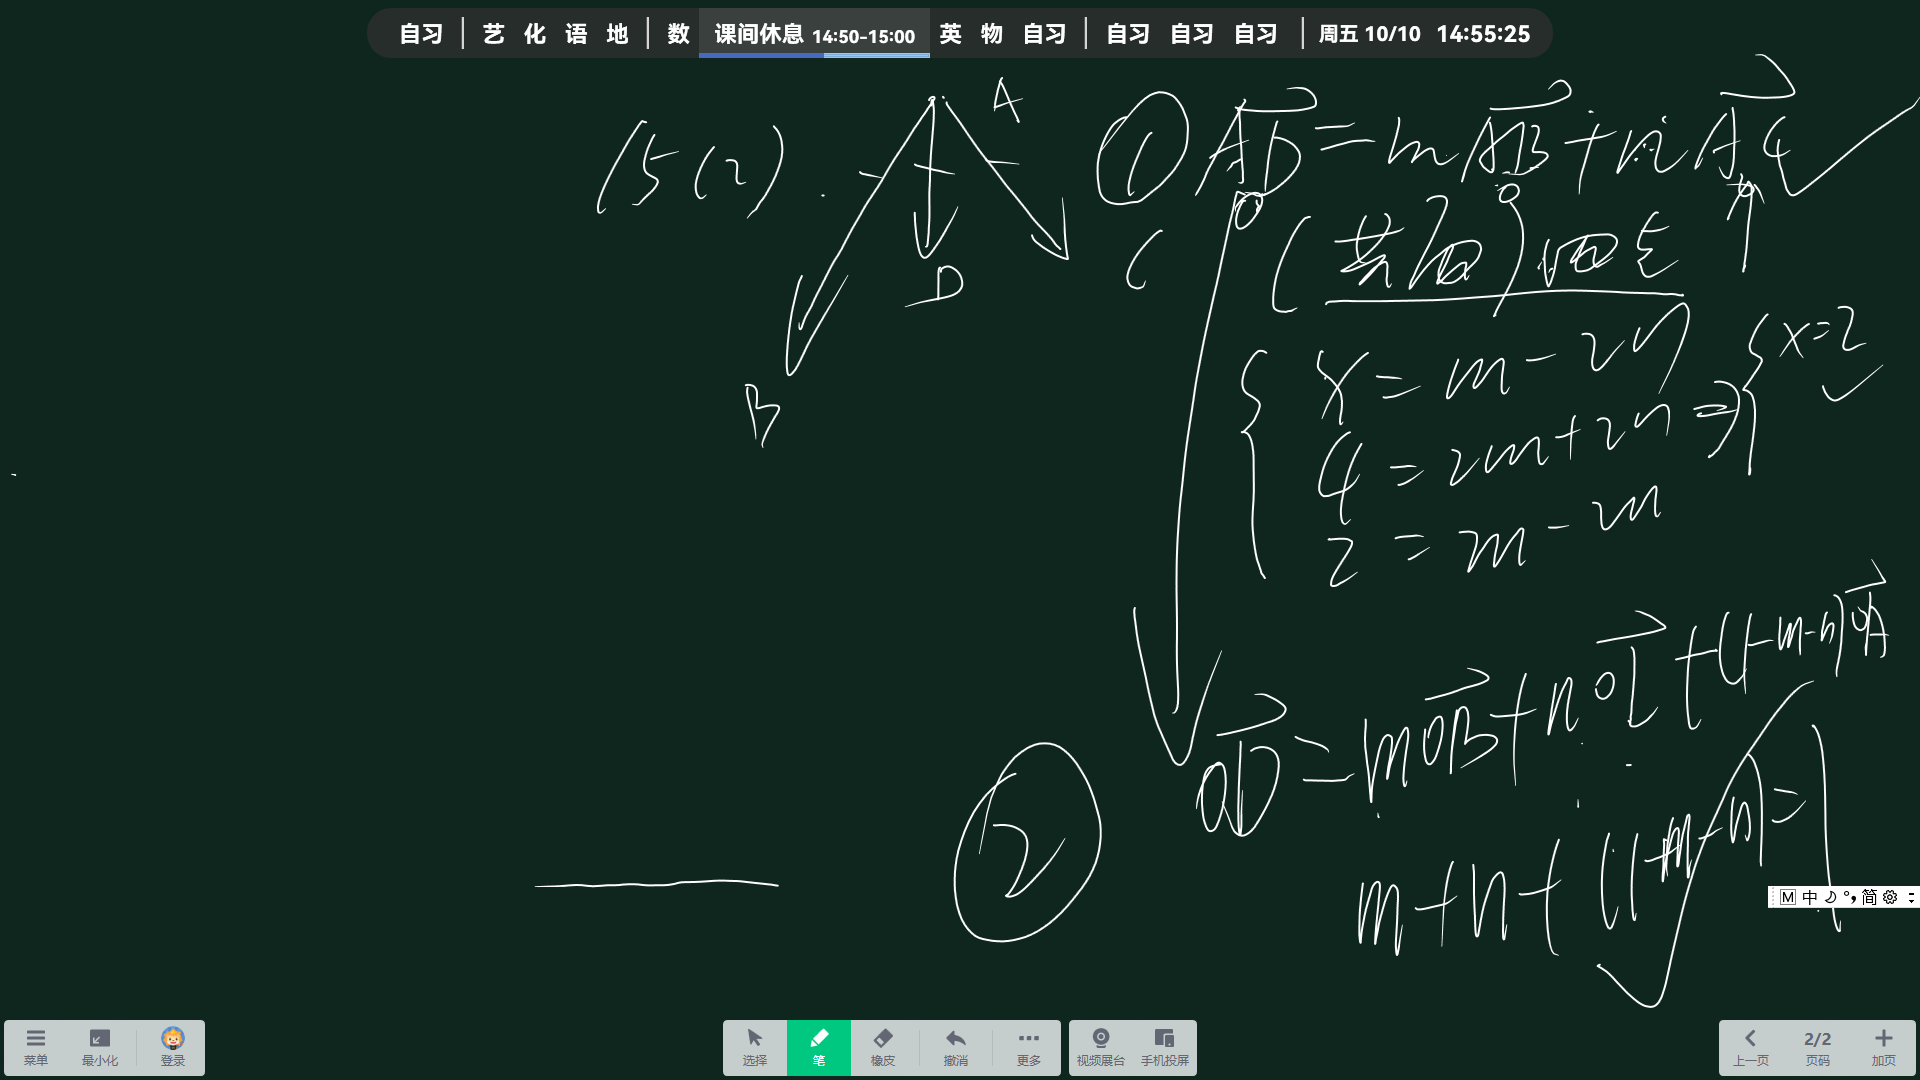 自习 | 艺 化 语 地 | 数 课间休息 14:50-15:00 英 物 自习 | 自习 自习 自习 | 周五 10/10 14:55:25
15(2).
A
B
D
C
① AD=mAB+nAC
(共面)四点
x=m-2n
4=2m+2n ⇒ x=2
2=m-2m
OD=mOB+nOC+(1-m-n)OA
②
m+n+(1-m-n)=1
M 中 简
菜单 最小化 登录
选择 笔 橡皮 撤消 更多
视频展台 手机投屏
上一页 2/2 页码 加页